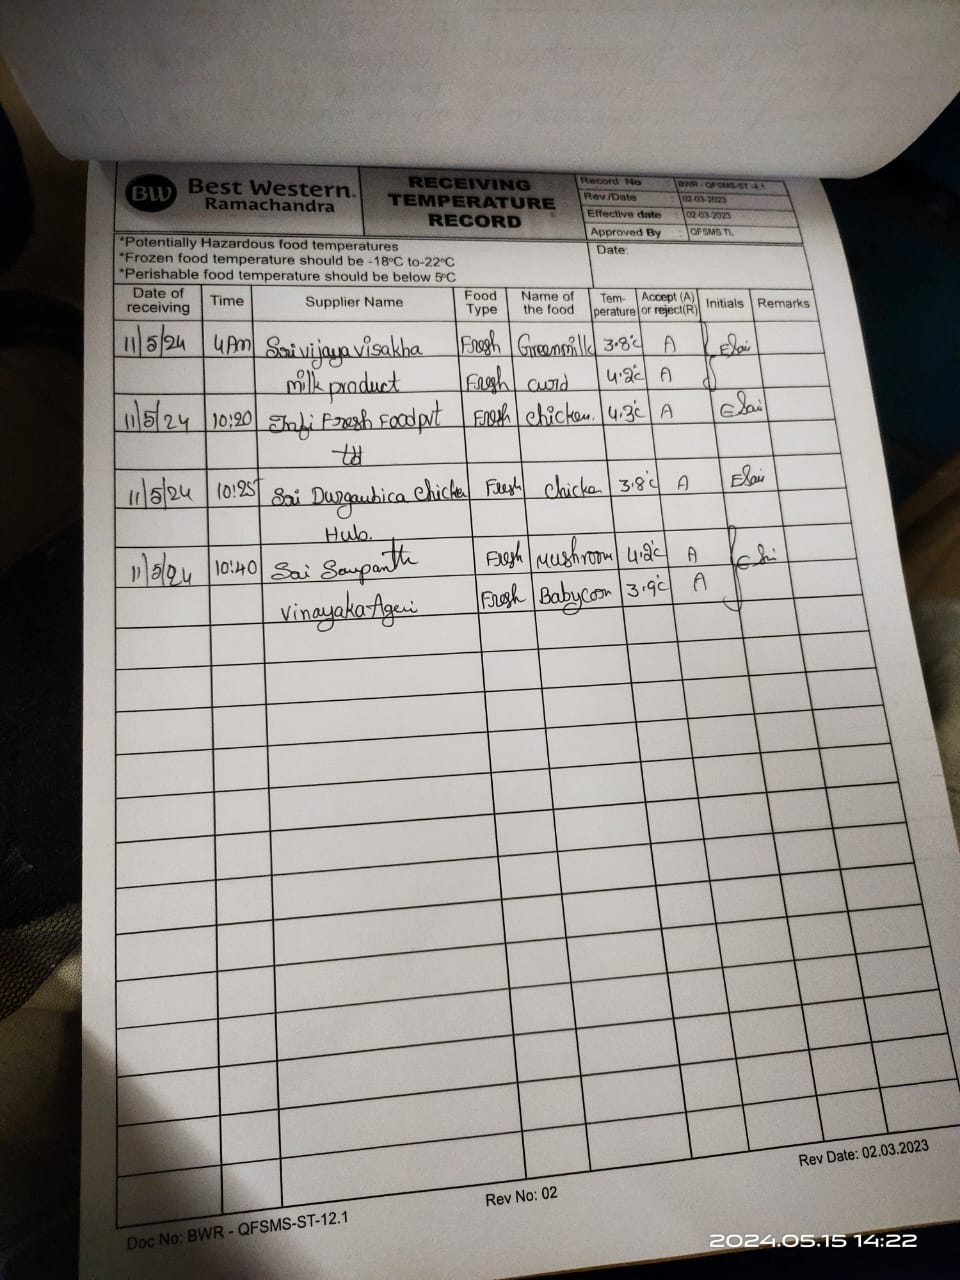 BW Best Western.
Ramachandra
RECEIVING
TEMPERATURE
RECORD
Record No : BWR - QFSMS-ST -4.1
Rev./Date : 02-03-2023
Effective date : 02-03-2023
Approved By : QFSMS TL
*Potentially Hazardous food temperatures
*Frozen food temperature should be -18°C to-22°C
*Perishable food temperature should be below 5°C
Date:
Date of receiving Time Supplier Name Food Type Name of the food Tem-perature Accept (A) or reject(R) Initials Remarks
11/5/24 4Am Sri vijaya visakha Fresh Greenmilk 3.8°c A ESai
milk product Fresh curd 4.2°c A
11/5/24 10:20 Fresh Food pvt Fresh chicken. 4.3°c A ESai
td
11/5/24 10:25 Sai Durgambica Chicken Fresh chicke 3.8°c A ESai
Hub.
11/5/24 10:40 Sai Fresh Mushroom 4.2°c A ESai
Vinayaka Fresh Babycorn 3.9°c A
Doc No: BWR - QFSMS-ST-12.1 Rev No: 02 Rev Date: 02.03.2023
2024.05.15 14:22